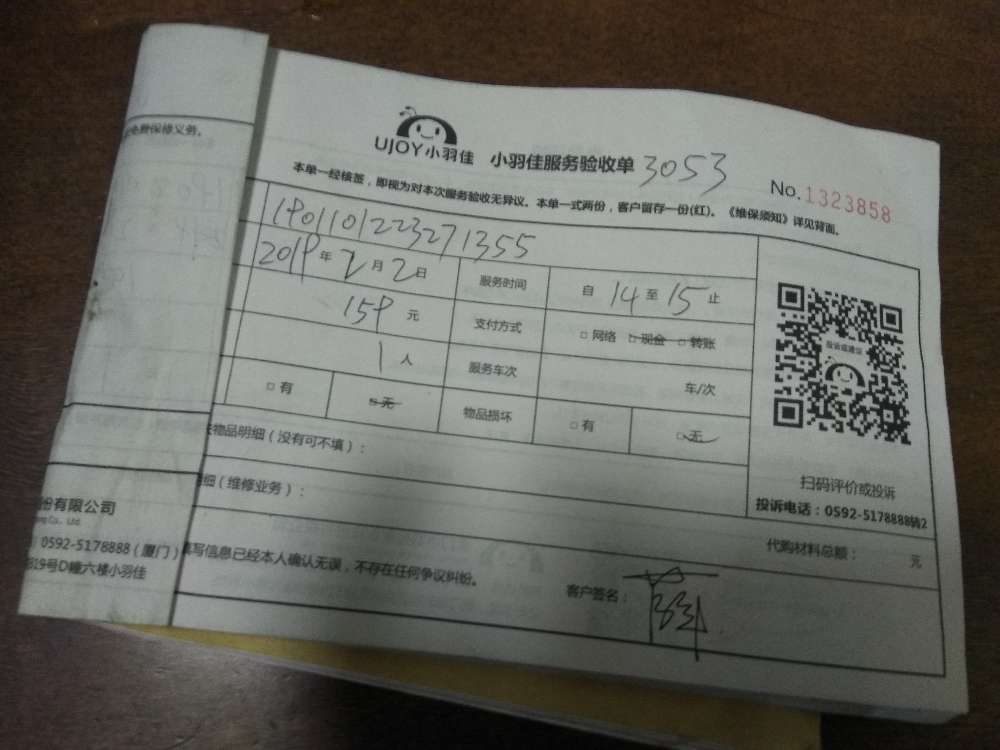 免费保修义务。
UJOY小羽佳 小羽佳服务验收单 3053
No.1323858
本单一经核签，即视为对本次服务验收无异议。本单一式两份，客户留存一份(红)。《维保须知》详见背面。
1901101223271355
2019年2月2日 服务时间 自 14 至 15 止
159 元 支付方式 □ 网络 □ 现金 □ 转账
1 人 服务车次 车/次
□ 有 □ 无 物品损坏 □ 有 □ 无
投诉或建议
扫码评价或投诉
投诉电话：0592-5178888转2
物品明细（没有可不填）：
细（维修业务）：
代购材料总额： 元
份有限公司
Co., Ltd.
0592-5178888（厦门）
819号D幢六楼小羽佳
填写信息已经本人确认无误，不存在任何争议纠纷。
客户签名：